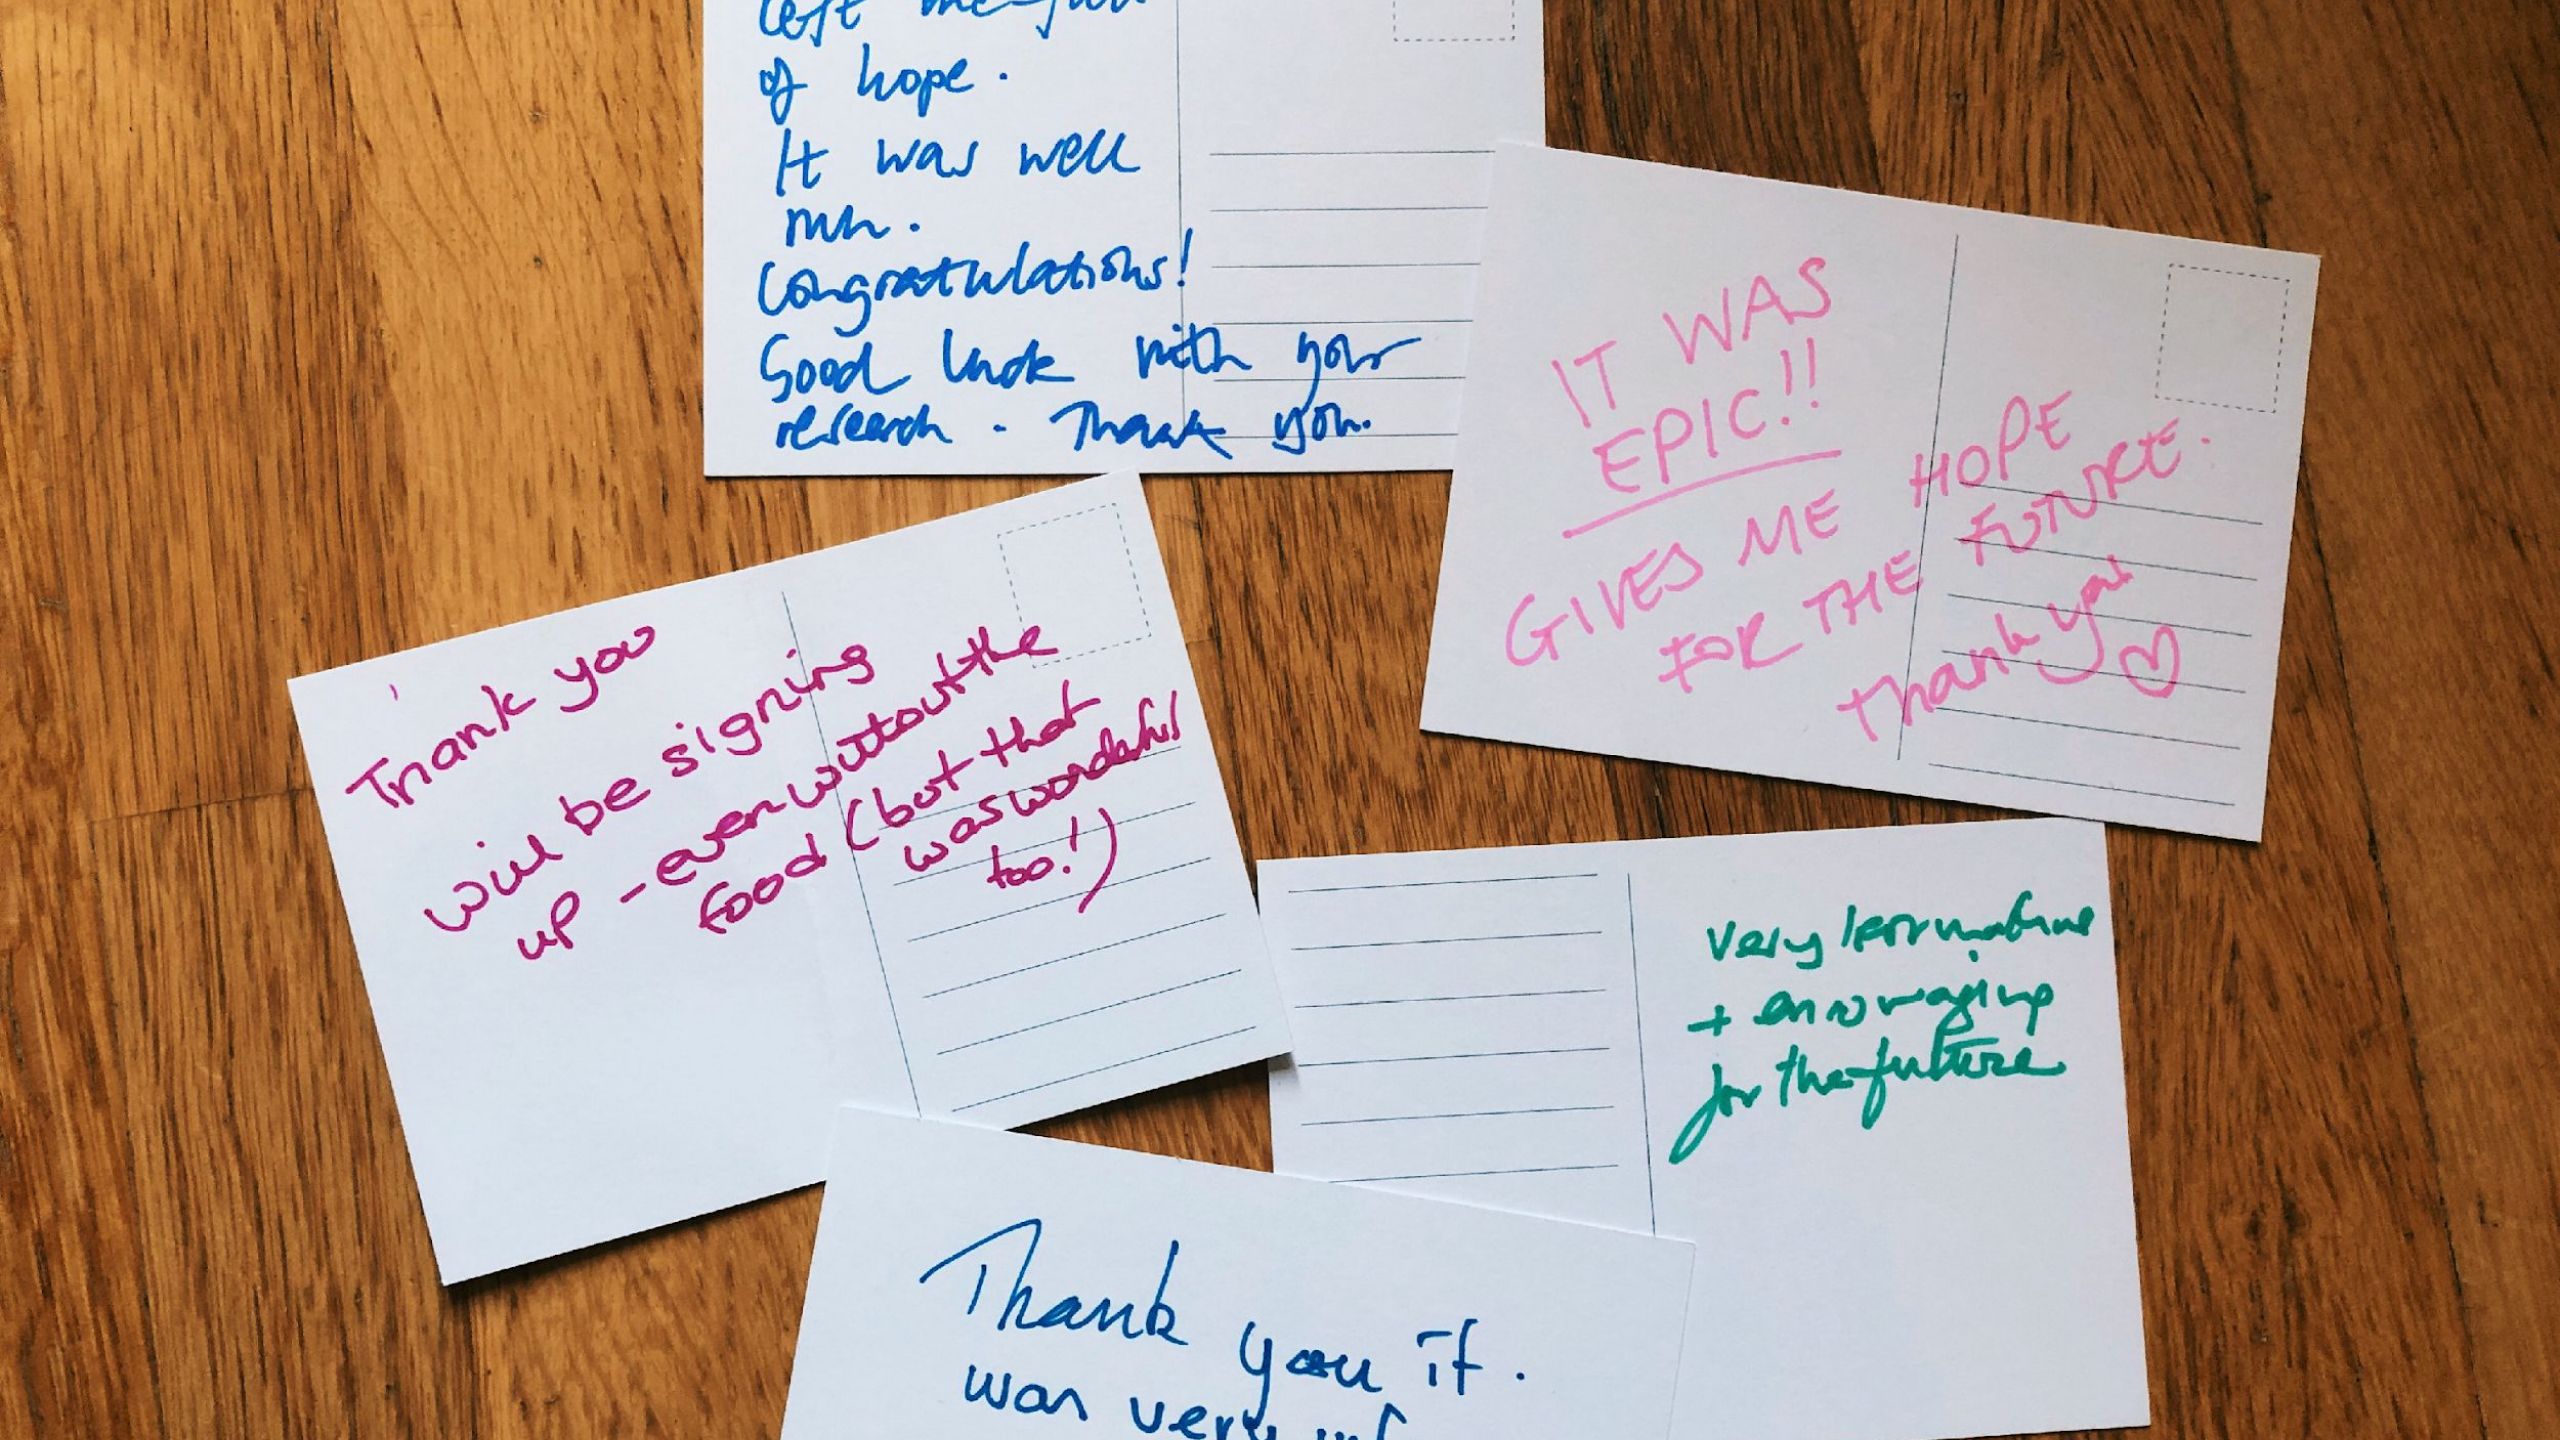 left me full
of hope.
It was well
run.
Congratulations!
Good luck with your
research. Thank you.
IT WAS
EPIC!!
GIVES ME HOPE
FOR THE FUTURE.
Thank you ♡
Thank you
will be signing
up - even without the
food (but that
was wonderful
too!)
Very informative
+ encouraging
for the future
Thank you it.
was very